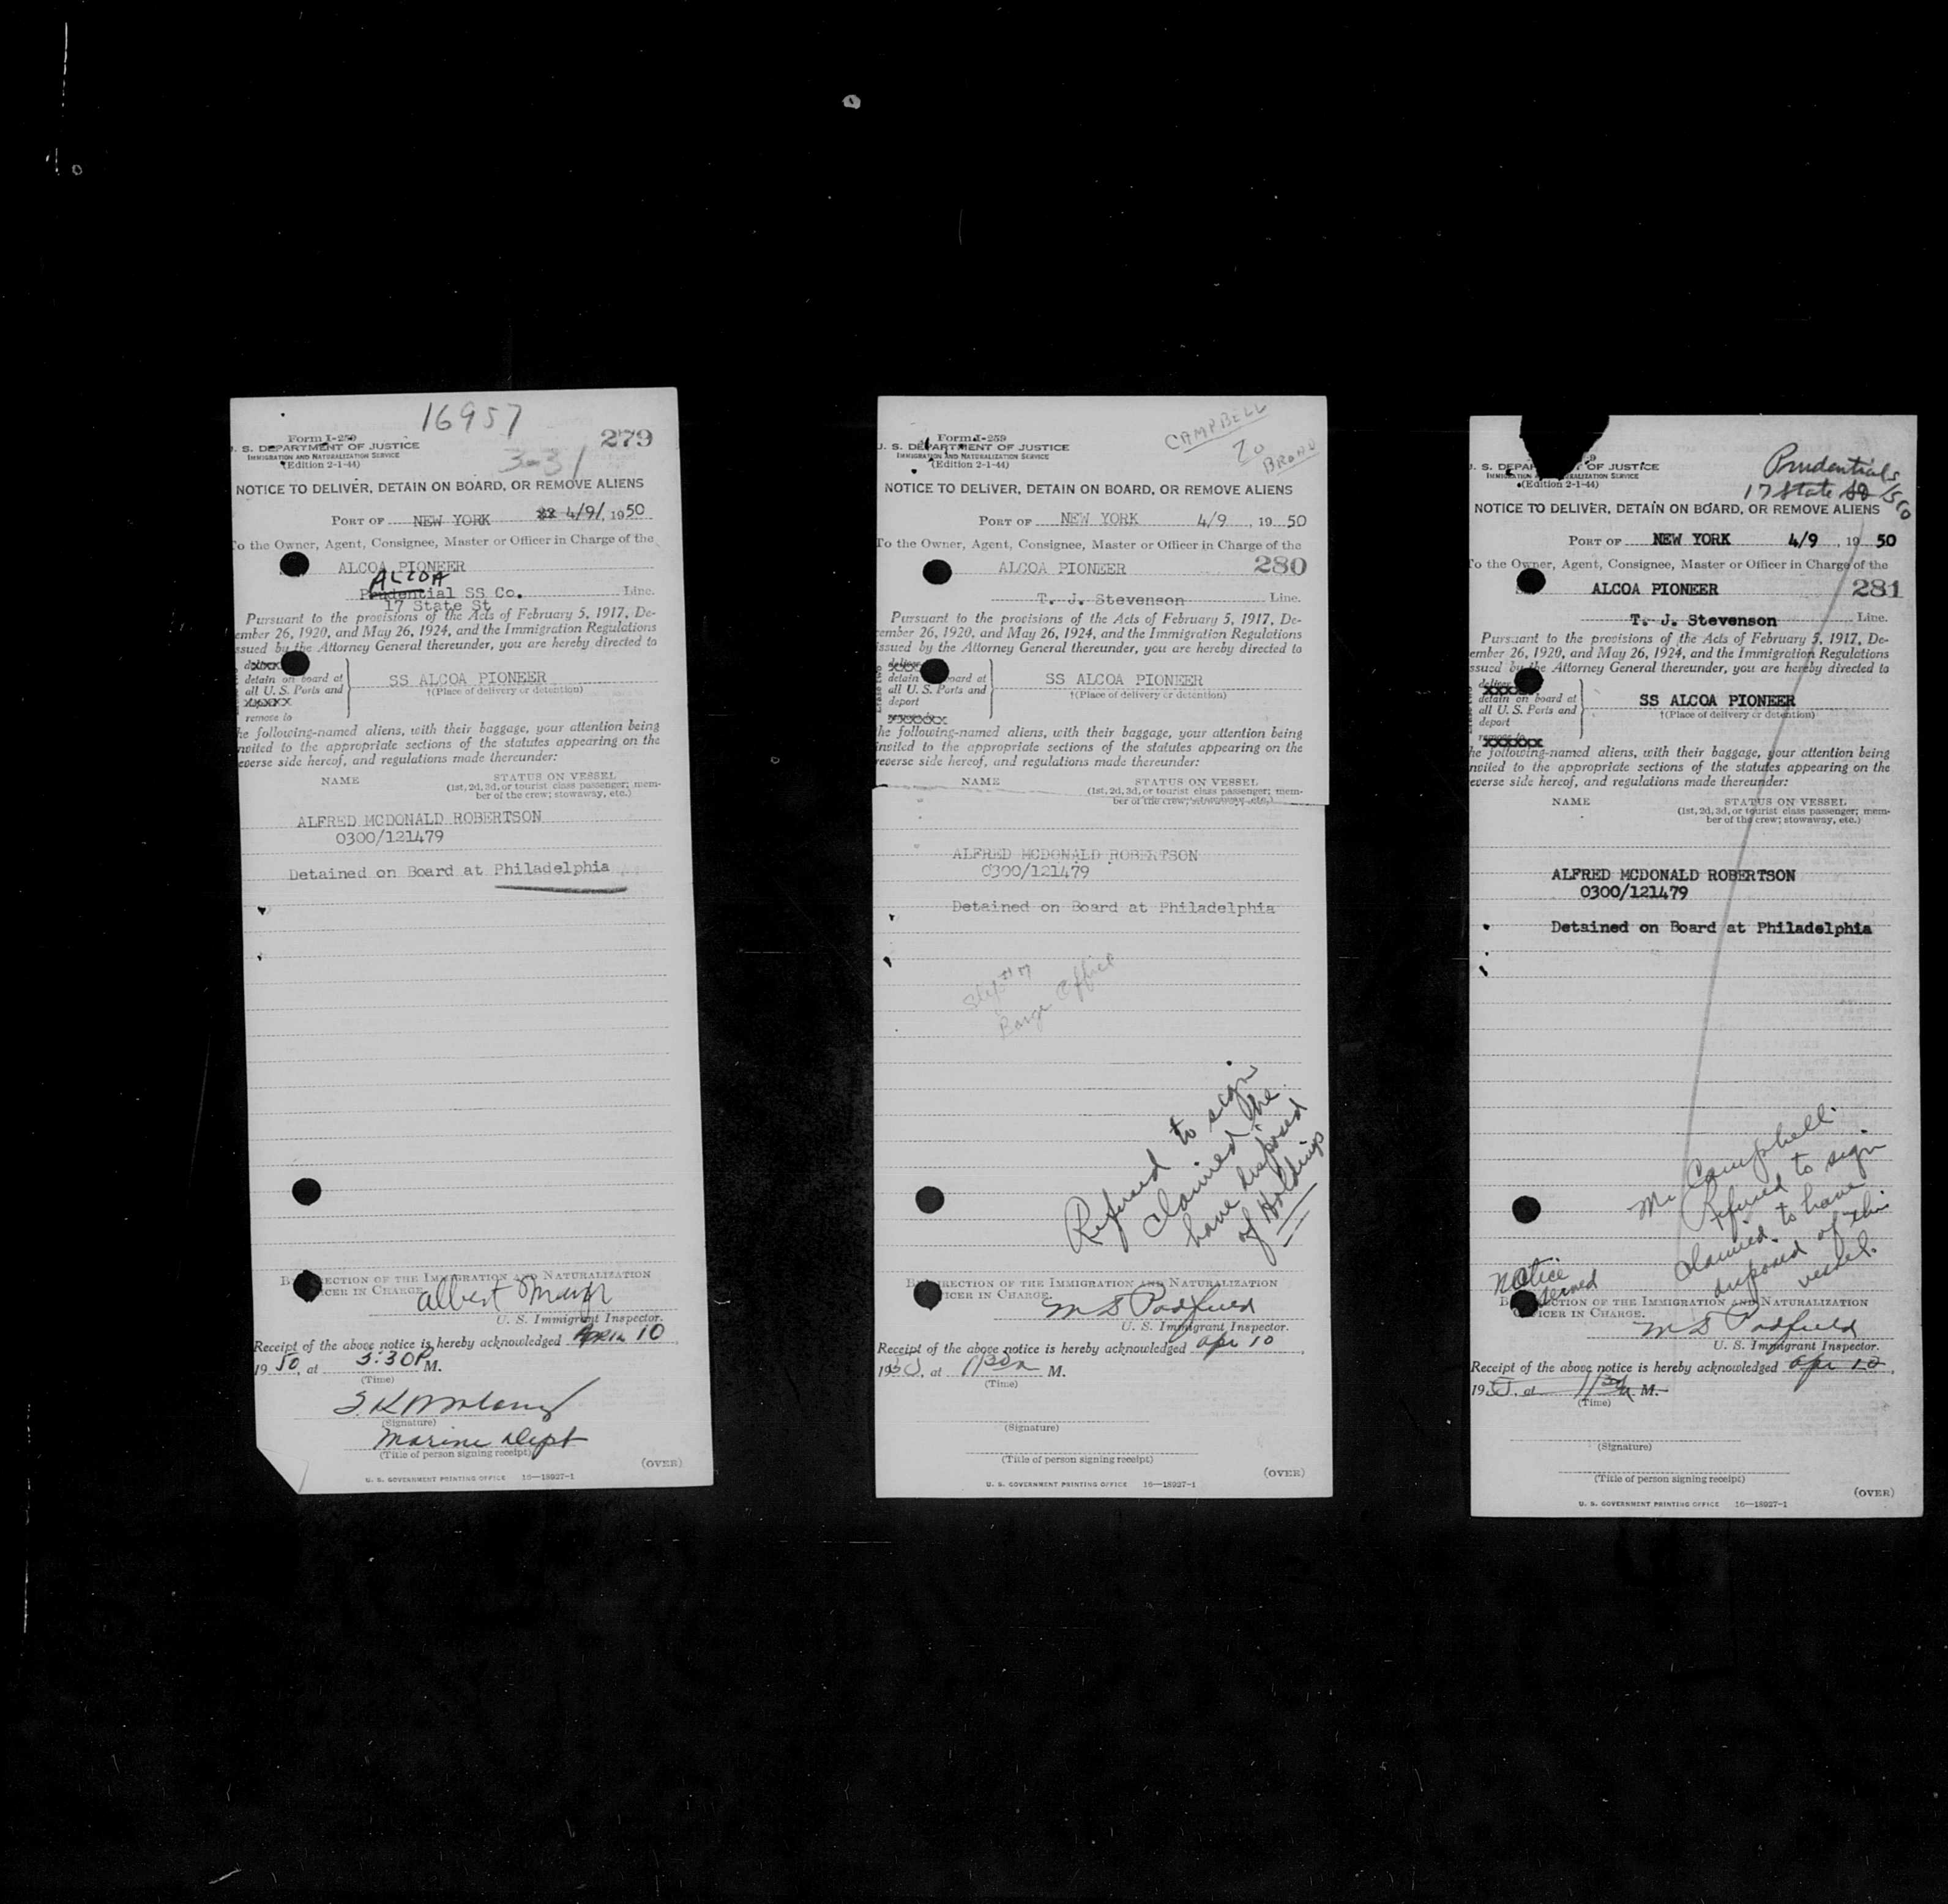 16957
Form I-259
279
U. S. DEPARTMENT OF JUSTICE
IMMIGRATION AND NATURALIZATION SERVICE
(Edition 2-1-44)
3-31
NOTICE TO DELIVER, DETAIN ON BOARD, OR REMOVE ALIENS
PORT OF NEW YORK 4/9/, 1950
To the Owner, Agent, Consignee, Master or Officer in Charge of the
ALCOA PIONEER
ALCOA
Prudential SS Co. Line.
17 State St
Pursuant to the provisions of the Acts of February 5, 1917, De-
ember 26, 1920, and May 26, 1924, and the Immigration Regulations
ssued by the Attorney General thereunder, you are hereby directed to
detain on board at
all U. S. Ports and
remove to
SS ALCOA PIONEER
†(Place of delivery or detention)
he following-named aliens, with their baggage, your attention being
nvited to the appropriate sections of the statutes appearing on the
everse side hereof, and regulations made thereunder:
NAME
STATUS ON VESSEL
(1st, 2d, 3d, or tourist class passenger; mem-
ber of the crew; stowaway, etc.)
ALFRED MCDONALD ROBERTSON
0300/121479
Detained on Board at Philadelphia
BY DIRECTION OF THE IMMIGRATION AND NATURALIZATION
OFFICER IN CHARGE.
Albert
U. S. Immigrant Inspector.
Receipt of the above notice is hereby acknowledged April 10
1950, at 3:30P M.
(Time)
(Signature)
Marine Dept
(Title of person signing receipt)
(OVER)
U. S. GOVERNMENT PRINTING OFFICE 16—18927-1
CAMPBELL
20
BROAD
Form I-259
U. S. DEPARTMENT OF JUSTICE
IMMIGRATION AND NATURALIZATION SERVICE
(Edition 2-1-44)
NOTICE TO DELIVER, DETAIN ON BOARD, OR REMOVE ALIENS
PORT OF NEW YORK 4/9, 1950
To the Owner, Agent, Consignee, Master or Officer in Charge of the
ALCOA PIONEER 280
T. J. Stevenson Line.
Pursuant to the provisions of the Acts of February 5, 1917, De-
cember 26, 1920, and May 26, 1924, and the Immigration Regulations
issued by the Attorney General thereunder, you are hereby directed to
deliver
detain on board at
all U. S. Ports and
deport
SS ALCOA PIONEER
†(Place of delivery or detention)
he following-named aliens, with their baggage, your attention being
invited to the appropriate sections of the statutes appearing on the
reverse side hereof, and regulations made thereunder:
NAME
STATUS ON VESSEL
(1st, 2d, 3d, or tourist class passenger; mem-
ber of the crew; stowaway, etc.)
ALFRED MCDONALD ROBERTSON
0300/121479
Detained on Board at Philadelphia
Slip #7
Barge Office
Refused to sign
claimed he
have disposed
of Holdings
BY DIRECTION OF THE IMMIGRATION AND NATURALIZATION
OFFICER IN CHARGE.
M S Padfield
U. S. Immigrant Inspector.
Receipt of the above notice is hereby acknowledged Apr 10
1950, at 1130a M.
(Time)
(Signature)
(Title of person signing receipt)
(OVER)
U. S. GOVERNMENT PRINTING OFFICE 16—18927-1
Prudential SS Co
17 State St
U. S. DEPARTMENT OF JUSTICE
(Edition 2-1-44)
NOTICE TO DELIVER, DETAIN ON BOARD, OR REMOVE ALIENS
PORT OF NEW YORK 4/9, 1950
To the Owner, Agent, Consignee, Master or Officer in Charge of the
ALCOA PIONEER 281
T. J. Stevenson Line.
Pursuant to the provisions of the Acts of February 5, 1917, De-
ember 26, 1920, and May 26, 1924, and the Immigration Regulations
ssued by the Attorney General thereunder, you are hereby directed to
deliver
detain on board at
all U. S. Ports and
deport
remove to
SS ALCOA PIONEER
†(Place of delivery or detention)
he following-named aliens, with their baggage, your attention being
nvited to the appropriate sections of the statutes appearing on the
everse side hereof, and regulations made thereunder:
NAME
STATUS ON VESSEL
(1st, 2d, 3d, or tourist class passenger; mem-
ber of the crew; stowaway, etc.)
ALFRED MCDONALD ROBERTSON
0300/121479
Detained on Board at Philadelphia
Mr Campbell
Refused to sign
claimed to have
disposed of this
vessel.
Notice
served
BY DIRECTION OF THE IMMIGRATION AND NATURALIZATION
OFFICER IN CHARGE.
M S Padfield
U. S. Immigrant Inspector.
Receipt of the above notice is hereby acknowledged Apr 10
1950, at 1130a M.
(Time)
(Signature)
(Title of person signing receipt)
(OVER)
U. S. GOVERNMENT PRINTING OFFICE 16—18927-1